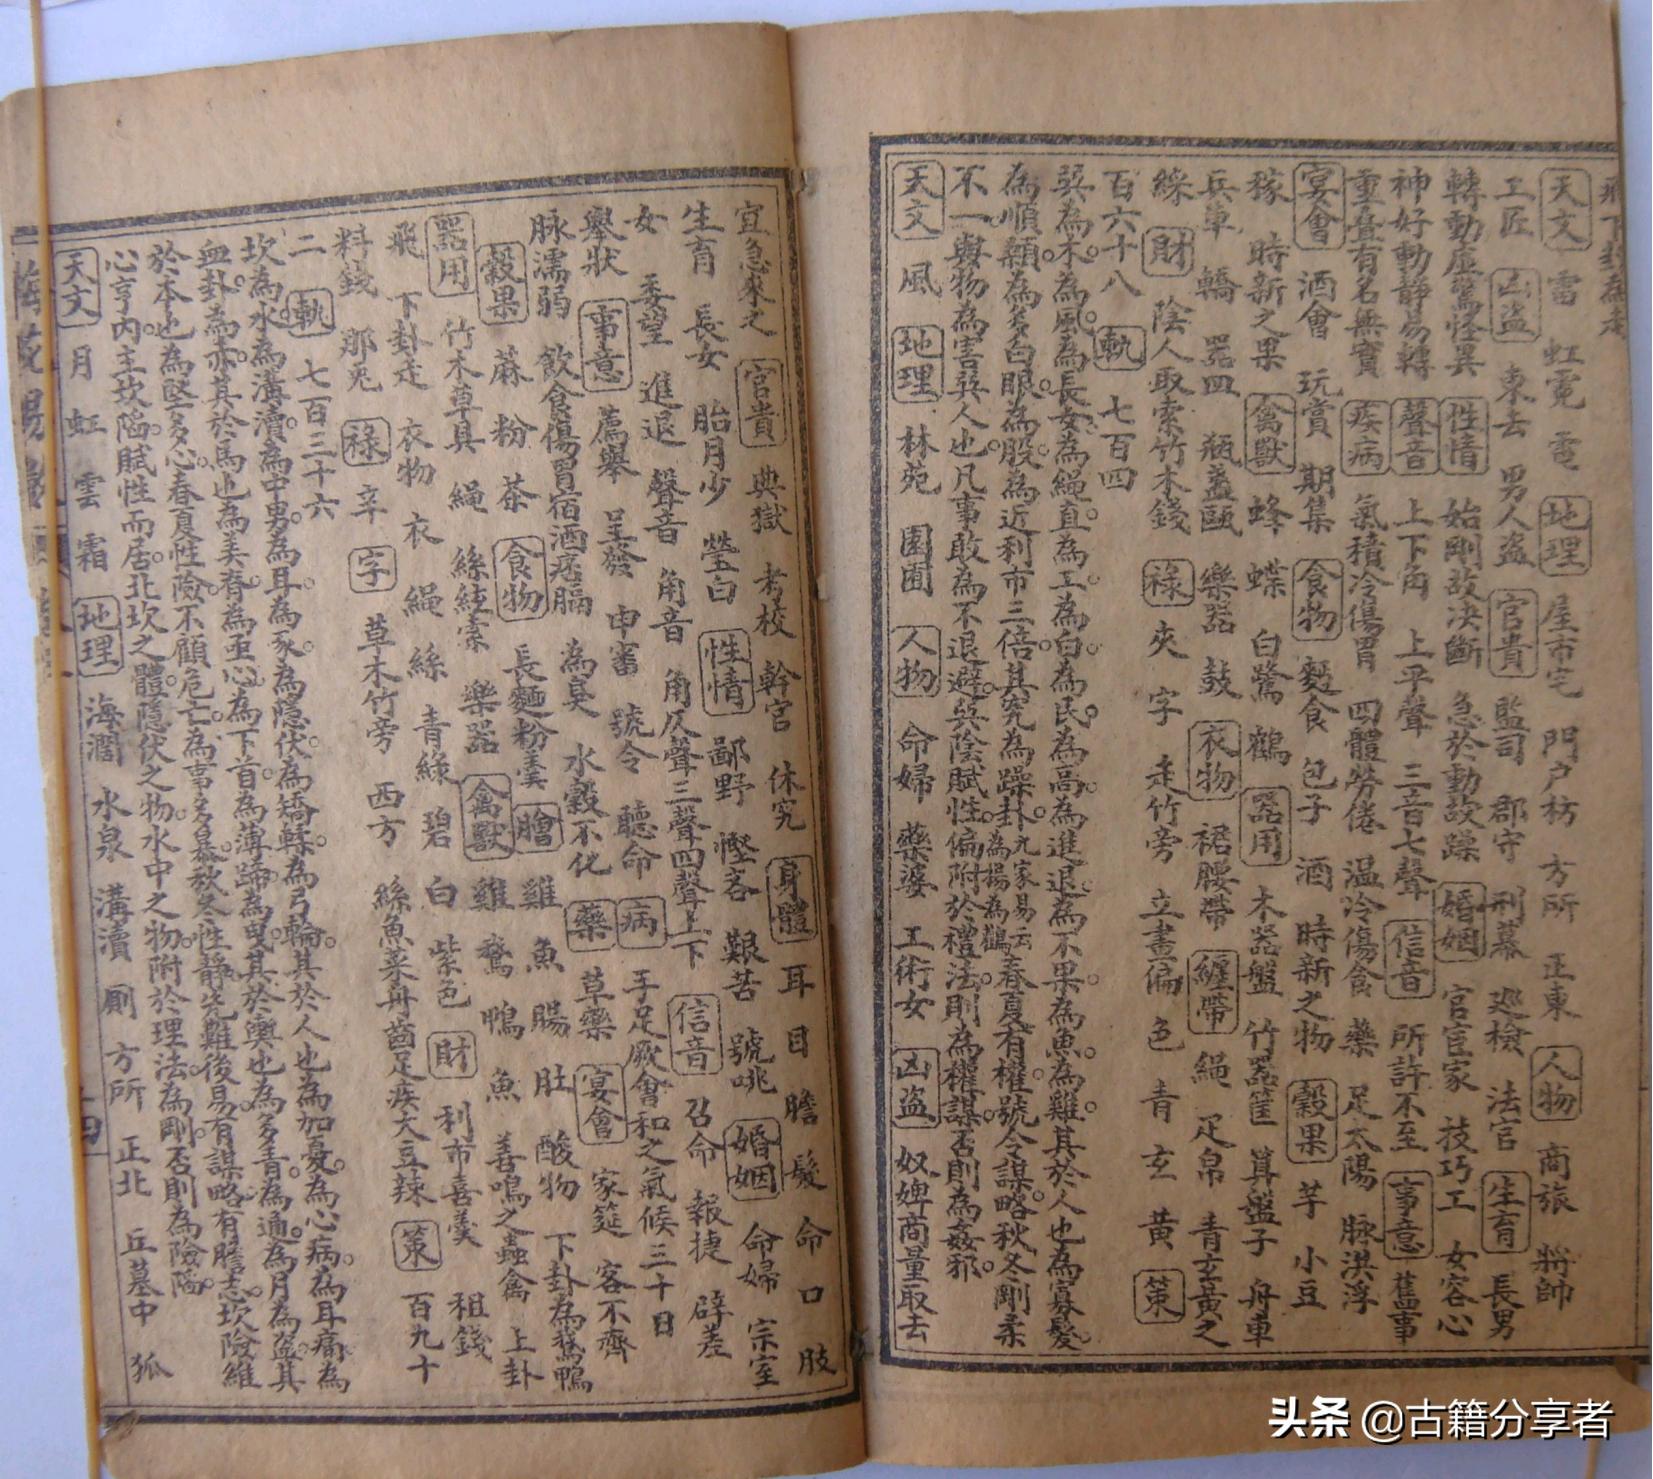 飛下卦為走
天文 雷 虹霓 電 地理 屋市宅 門戶枋 方所 正東 人物 商旅 將帥
工匠 凶盜 東去 男人盜 官貴 監司 郡守 刑幕 廵檢 法官 生育 長男
轉動虛驚怪異 性情 始剛故決斷 急於動故躁 婚姻 官宦家 技巧工 女客心
神好動静易轉 聲音 上下角 上平聲 三音七聲 信音 所許不至 事意 舊事
重疊有名無實 疾病 氣積冷傷胃 四體勞倦 温冷傷食 藥 足太陽 脉洪浮
宴會 酒會 玩賞 期集 食物 麵食 包子 酒 時新之物 穀果 芋 小豆
稼 時新之果 禽獸 蜂 蝶 白鷺 鶴 器用 木器盤 竹器筐 算盤子 舟車
兵車 轎 器皿 瓶盞甌 樂器 鼓 衣物 裙腰帶 纏帶 繩 疋帛 青玄黃之
綵 財 陰人取索竹木錢 祿 夾 字 走竹旁 立畫偏 色 青 玄 黃 策
百六十八 軌 七百四
巽為木。為風。為長女。為繩直。為工。為白。為民。為高。為進退。為不果。為魚。為雞。其於人也。為寡髮。
為順顙。為多白眼。為股。為近利市三倍。其究為躁卦。九家易云為揚為鸛。春夏有權。號令謀略。秋冬剛柔
不一。與物為害。巽人也。凡事敢為不退避。巽陰賦性。偏附於禮法。則為權謀。否則為姦邪。
天文 風 地理 林苑 園圃 人物 命婦 藥婆 工術女 凶盜 奴婢商量取去
宜急來之 官貴 典獄 考校 幹官 休究 身體 耳 目 膽 髮 命 口 肢
生育 長女 胎月少 瑩白 性情 鄙野 慳吝 艱苦 號咷 婚姻 命婦 宗室
女 委望 進退 聲音 角音 角仄聲三聲四聲上下 信音 召命 報捷 辟差
舉狀 事意 薦舉 呈發 申審 號令 聽命 病 手足厥會和之氣候三十日
脉濡弱 飲食傷胃宿酒痞膈 為臭 水穀不化 藥 草藥 宴會 家筵 客不齊
穀果 蔴 粉 茶 食物 長麵粉羹 膾 雞 魚 腸 肚 酸物 下卦為鵞鴨
器用 竹木草具 繩 絲絃索 樂器 禽獸 雞 鵞 鴨 魚 善鳴之蟲禽 上卦
飛 下卦走 衣物 衣 繩 絲 青綠 碧 白 紫色 財 利市喜羹 租錢
料錢 那兎 祿 辛 字 草木竹旁 西方 絲魚菜舟齒足疾大豆辣 策 百九十
二 軌 七百三十六
坎為水。為溝瀆。為中男。為耳。為豕。為隱伏。為矯輮。為弓輪。其於人也。為加憂。為心病。為耳痛。為
血卦。為赤。其於馬也。為美脊。為亟心。為下首。為薄蹄。為曳。其於輿也。為多眚。為通。為月。為盜。其
於木也。為堅多心。春夏性險。不顧危亡。為事多暴。秋冬性靜。先難後易。有謀略。有膽志。坎險維
心亨。內主坎陷。賦性而居。北坎之體。隱伏之物。水中之物。附於理法。為剛。否則為險陷。
天文 月 虹 雲 霜 地理 海澗 水泉 溝瀆 厠 方所 正北 丘墓中 狐
頭条 @古籍分享者